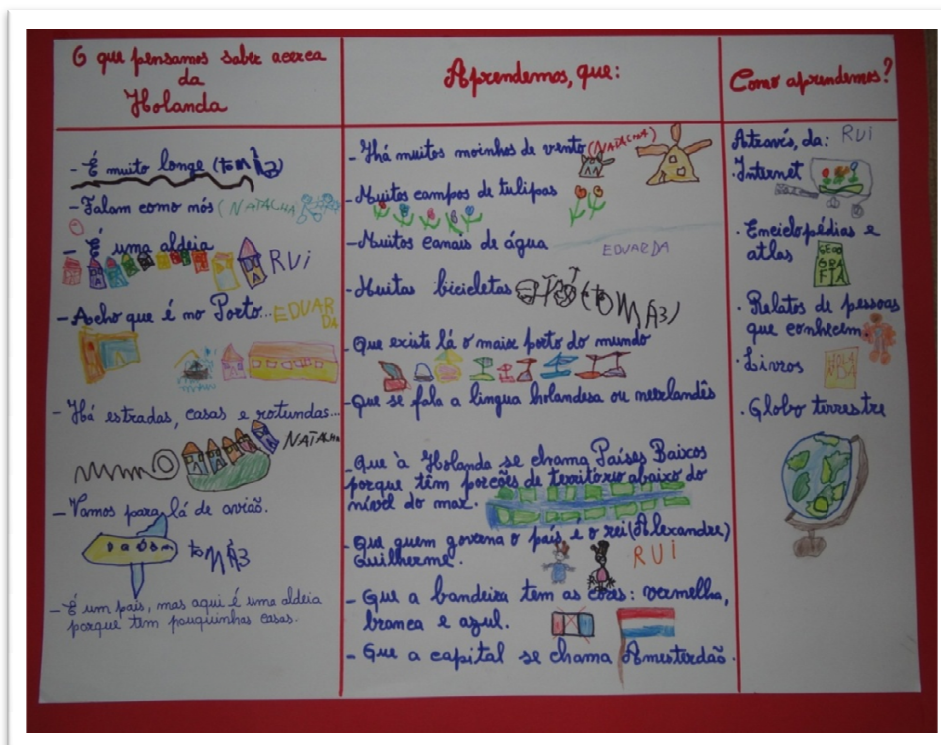 O que pensamos saber acerca
da
Holanda
- É muito longe (tOMÁ3)
- Falam como nós (NATALHA
- É uma aldeia
RUi
- Acho que é no Porto... EDUAR
DA
- Há estradas, casas e rotundas...
NATALHA
- Vamos para lá de avião.
tOMÁ3
- É um país, mas aqui é uma aldeia
porque tem pouquinhas casas.
Aprendemos, que:
- Há muitos moinhos de vento (NATACHA)
- Muitos campos de tulipas
- Muitos canais de água
EDUARDA
- Muitas bicicletas (tOMÁ3)
- Que existe lá o maior porto do mundo
- Que se fala a língua holandesa ou neerlandês
- Que à Holanda se chama Países Baixos
porque têm porções de território abaixo do
nível do mar.
- Que quem governa o país é o rei (Alexandre)
Guilherme.
RUI
- Que a bandeira tem as cores: vermelha,
branca e azul.
- Que a capital se chama Amesterdão.
Como aprendemos?
Através, da: RUI
. Internet
. Enciclopédias e
atlas
GEO
GRA
FIA
. Relatos de pessoas
que conhecem.
. Livros
. Globo terrestre